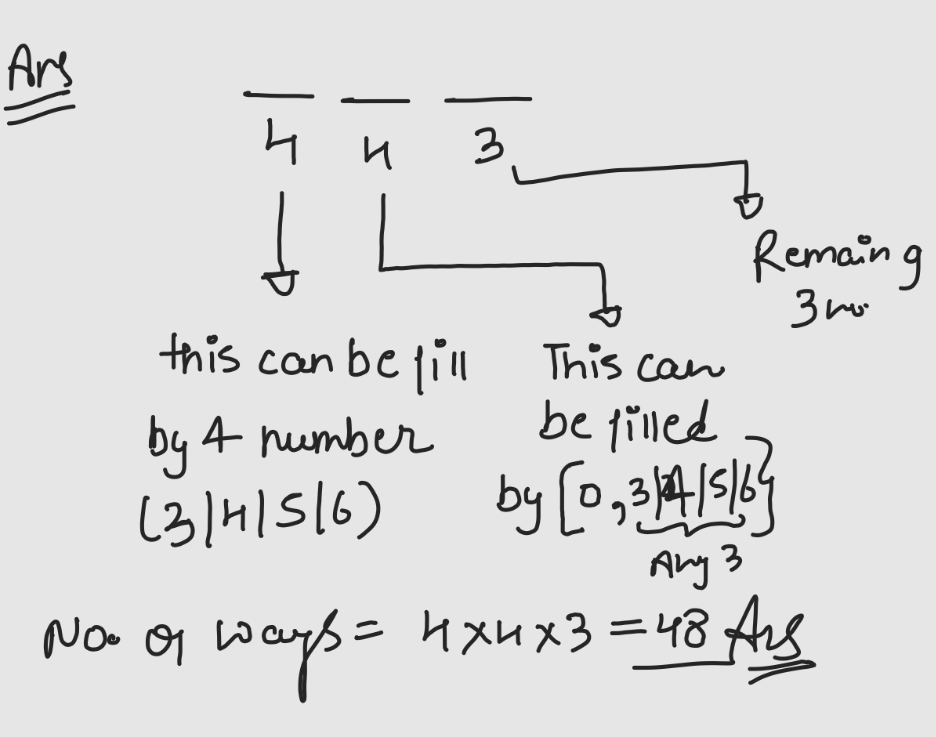 Ans
4 4 3
Remaing
3 no.
this can be fill
by 4 number
(3|4|5|6)
This can
be filled
by [0, 3|4|5|6}
Any 3
No. of ways = 4x4x3 = 48 Ans